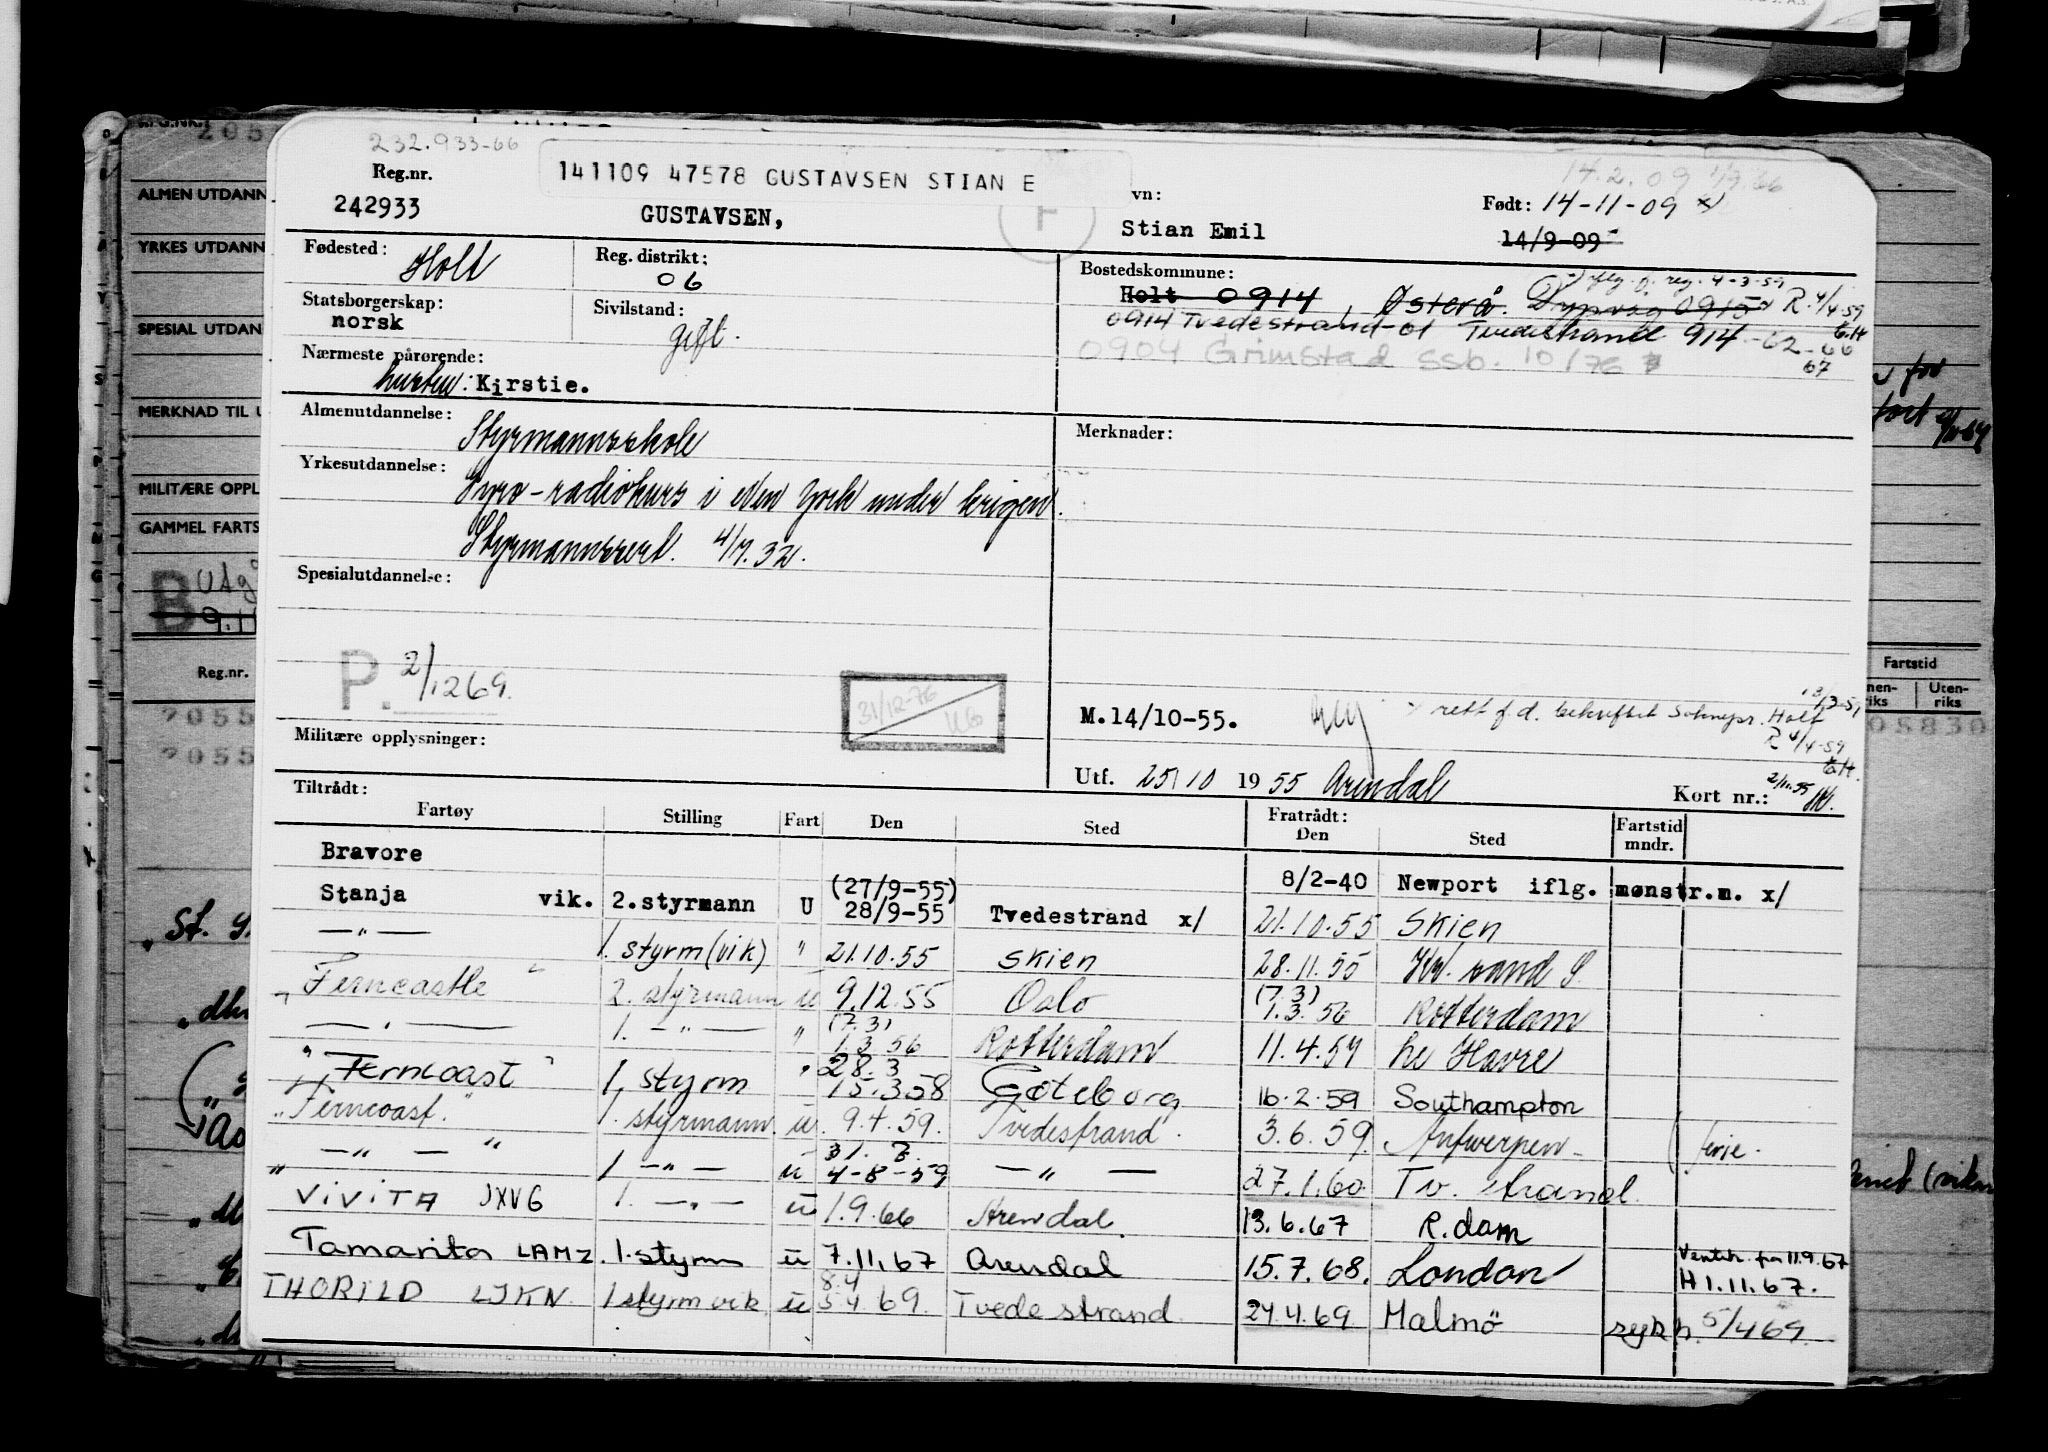 232.933-66
Reg.nr. 141109 47578 GUSTAVSEN STIAN E vn: 14.2.09
242933 GUSTAVSEN, Stian Emil Født: 14-11-09 x/
14/9-09
F
Fødested: Holt Reg. distrikt: 06 Bostedskommune:
Holt 0914, Østerå. Dypvåg 0915 R. 4/4-59
Statsborgerskap: norsk Sivilstand: gift.
0914 Tvedestrand-61 Tvedestrand 914-62-66
67
0904 Grimstad ssb. 10/76
Nærmeste pårørende:
hustru: Kirstie.
Almenutdannelse: Styrmannsskole Merknader:
Yrkesutdannelse: Gyro-radiokurs i New York under krigen.
Styrmannssert. 4/7.32.
Spesialutdannelse:
P. 2/1269.
31/12-76
M.14/10-55. x rett f.d. bekreftet Soknepr. Holt 13/3-59
R 4/4-59
Militære opplysninger:
Utf. 25/10 1955 Arendal Kort nr.: 2/11.55
Tiltrådt: Fratrådt:
Fartøy Stilling Fart Den Sted Den Sted Fartstid mndr.
Bravore 8/2-40 Newport iflg. mønstr.m. x/
Stanja vik. 2.styrmann U (27/9-55) 28/9-55 Tvedestrand x/ 21.10.55 Skien
—"— 1. styrm (vik) " 21.10.55 Skien 28.11.55 Kr. sand S.
"Ferncastle" 2. styrmann u 9.12.55 Oslo (7.3) 1.3.56 Rotterdam
—"— 1. —"— " (7.3) 1.3.56 Rotterdam 11.4.57 Le Havre
"Ferncoast" 1. styrm " 28.3 15.3.58 Göteborg 16.2.59 Southampton
"Ferncoast." 1. styrmann. u. 9.4.59. Tvedestrand. 3.6.59. Antwerpen ferie.
" —"— " 1 —"— u 31.7. 4-8-59 —"— 27.1.60 Tv. strand.
VIVITA JXVG 1. —"— u 1.9.66 Arendal. 13.6.67 R.dam
Tamarita LAMZ. 1. styrm u 7.11.67 Arendal 15.7.68. London Ventet. fra 11.9.67
H 1.11.67.
THORILD LJKN. 1 styrm vik u 8.4 5 4.69. Tvedestrand 24.4.69 Malmö sykh. 5/469.
ALMEN UTDANN
YRKES UTDANN
SPESIAL UTDAN
MERKNAD TIL U
MILITÆRE OPPL
GAMMEL FARTS
B
Reg.nr.
2055
2055
Fartstid
Uten-
riks
05830